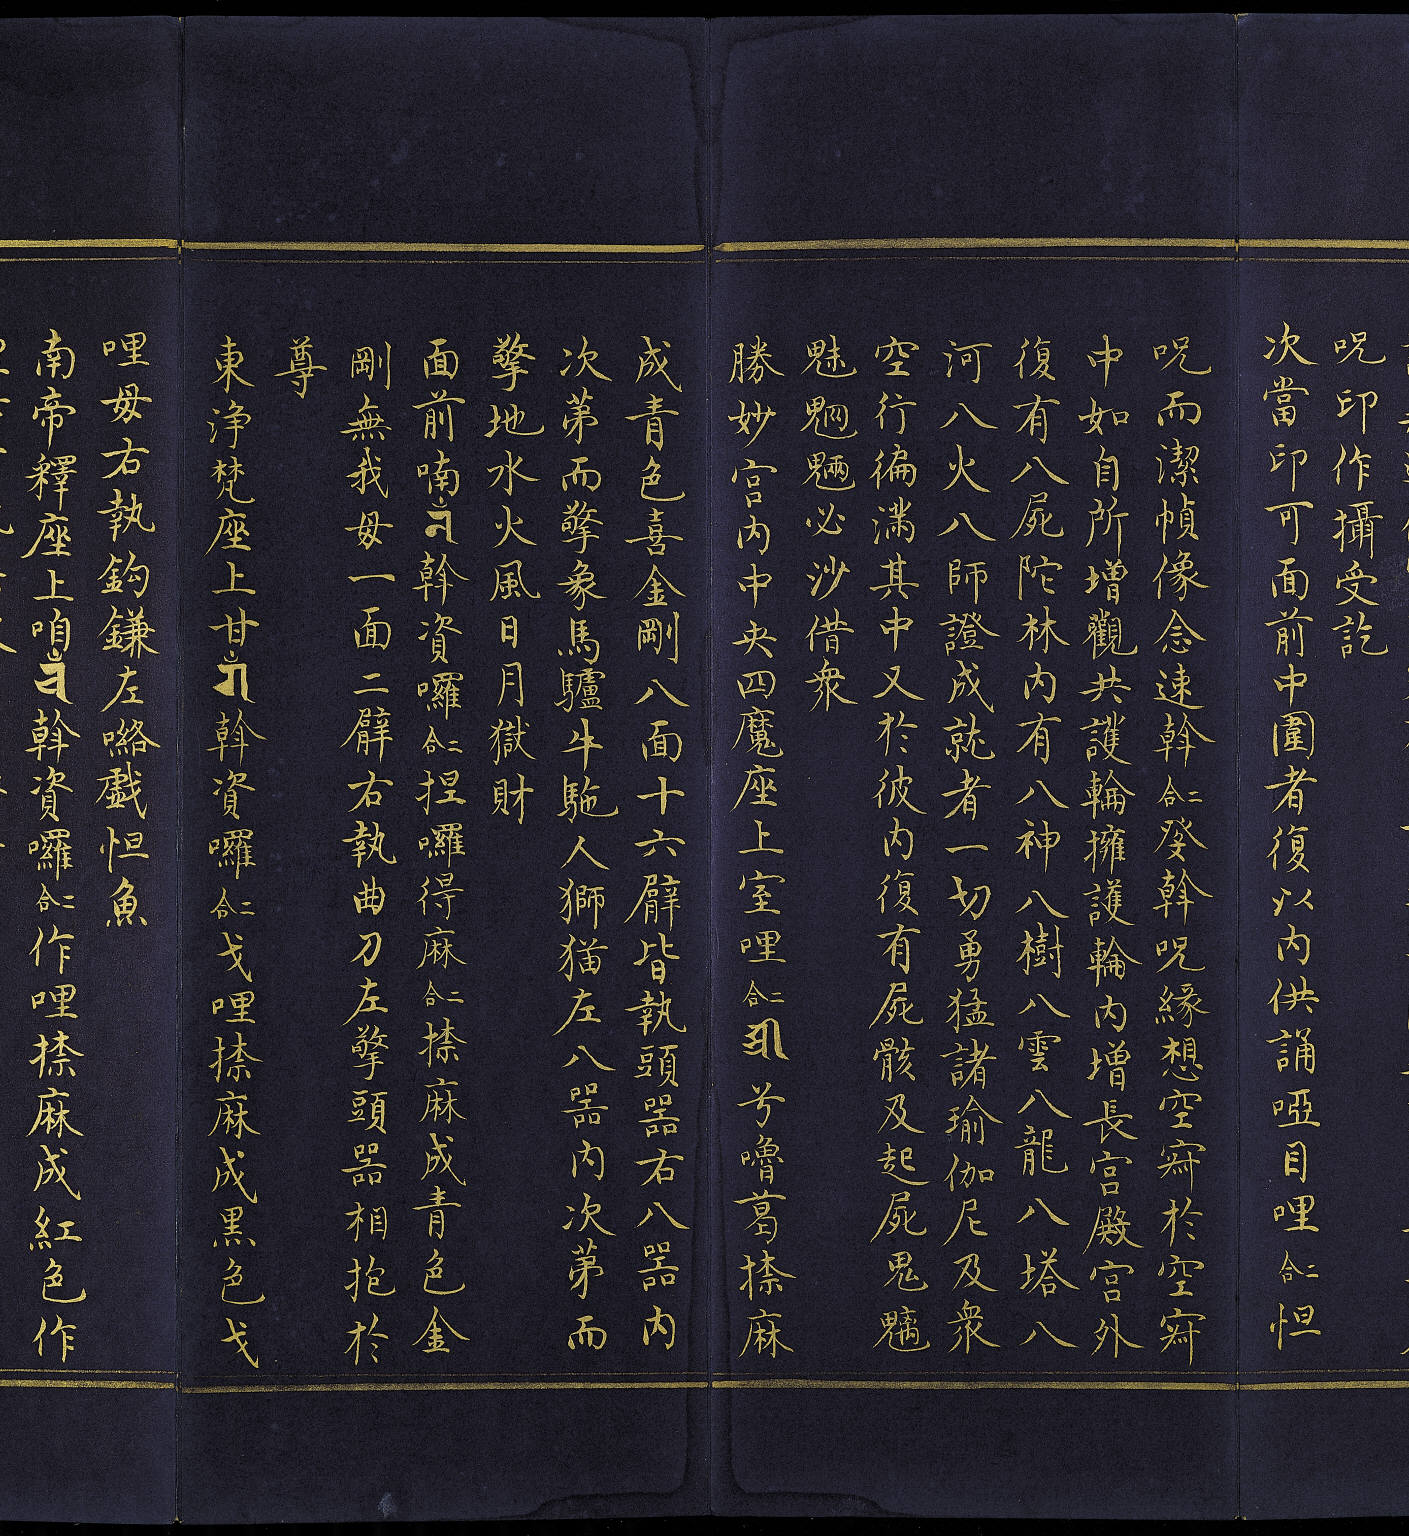 呪印作攝受訖
次當印可面前中圍者復以内供誦啞目哩二合怛
呪而潔幀像念速斡二合癹斡呪緣想空寂於空寂
中如自所增觀共護輪擁護輪内增長宫殿宫外
復有八屍陀林内有八神八樹八雲八龍八塔八
河八火八師證成就者一切勇猛諸瑜伽尼及衆
空行徧滿其中又於彼内復有屍骸及起屍鬼魑
魅魍魎必沙借衆
勝妙宫内中央四魔座上室哩二合兮嚕葛捺麻
成青色喜金剛八面十六臂皆執頭器右八器内
次第而擎象馬驢牛駞人獅猫左八器内次第而
擎地水火風日月獄財
面前喃斡資囉二合捏囉得麻二合捺麻成青色金
剛無我母一面二臂右執曲刀左擎頭器相抱於
尊
東淨梵座上甘斡資囉二合戈哩捺麻成黑色戈
哩母右執鈎鎌左㗉戲怛魚
南帝釋座上咱斡資囉二合作哩捺麻成紅色作